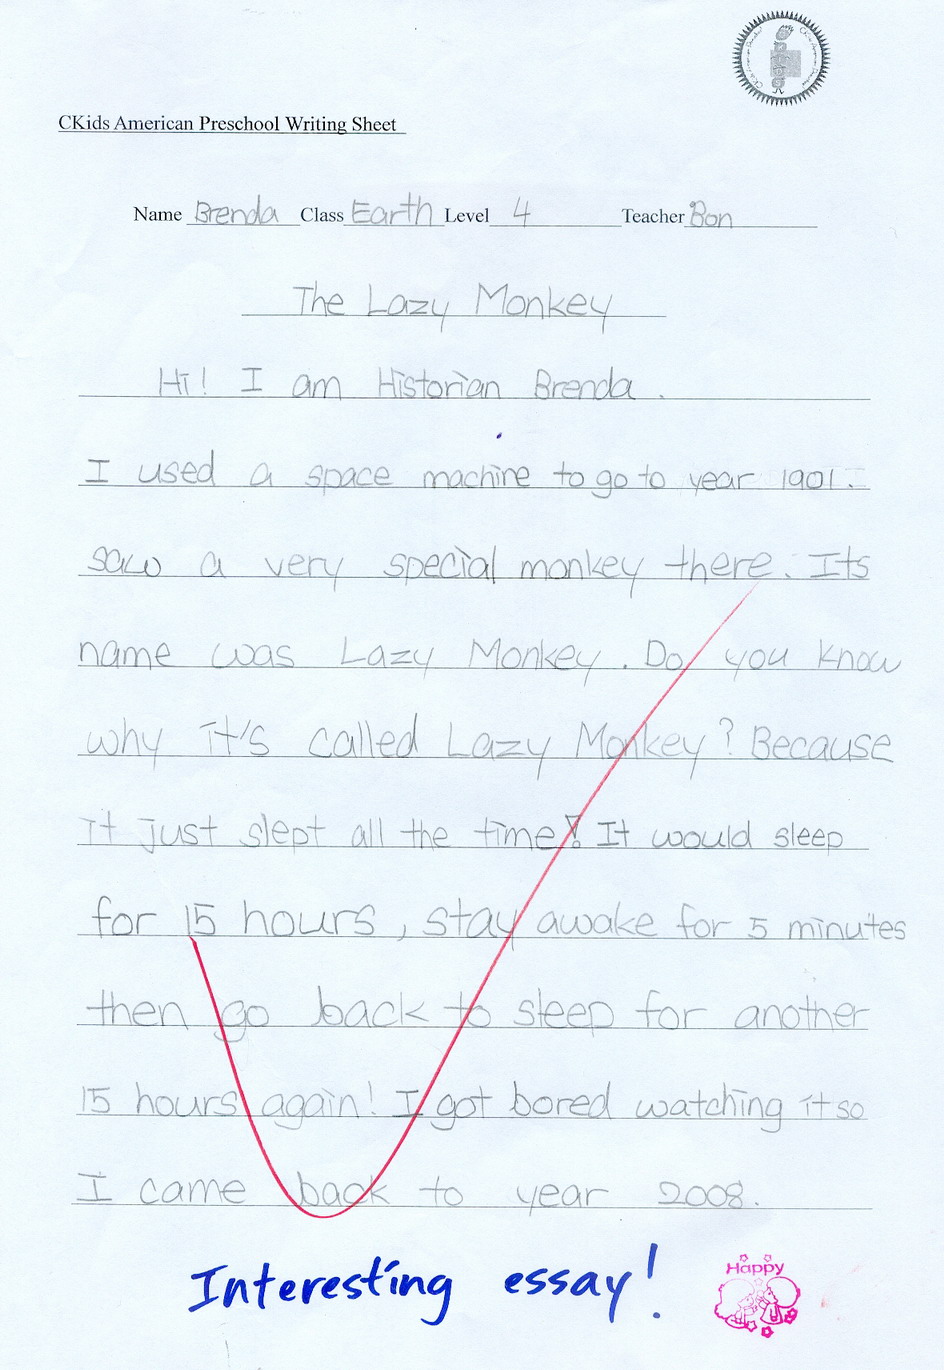 CKids American Preschool Writing Sheet
Name Brenda Class Earth Level 4 Teacher Bon
The Lazy Monkey
Hi! I am Historian Brenda.
I used a space machine to go to year 1901. I
saw a very special monkey there. Its
name was Lazy Monkey. Do you know
why it's called Lazy Monkey? Because
it just slept all the time! It would sleep
for 15 hours, stay awake for 5 minutes
then go back to sleep for another
15 hours again! I got bored watching it so
I came back to year 2008.
Interesting essay!
Happy